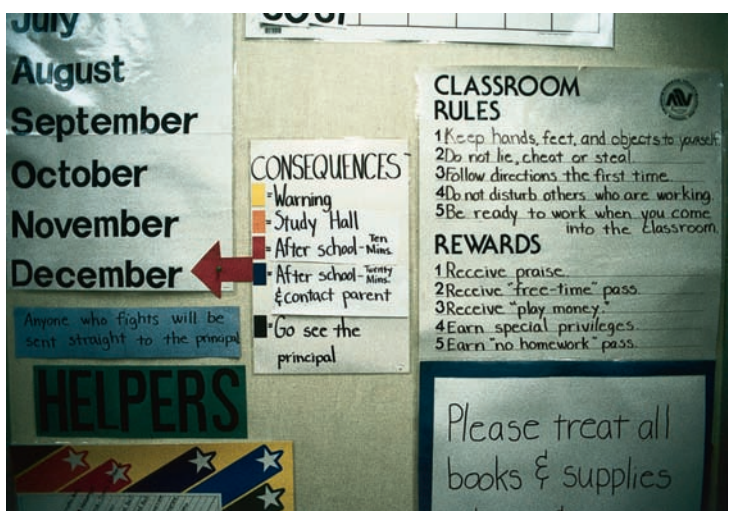 July
August
September
October
November
December
Anyone who fights will be
sent straight to the principal
HELPERS
CONSEQUENCES
= Warning
= Study Hall
= After school - Ten Mins.
= After school - Twenty Mins.
& contact parent
= Go see the
principal
CLASSROOM
RULES
1 Keep hands, feet, and objects to yourself.
2 Do not lie, cheat or steal.
3 Follow directions the first time.
4 Do not disturb others who are working.
5 Be ready to work when you come
into the classroom.
REWARDS
1 Receive praise.
2 Receive "free-time" pass.
3 Receive "play money."
4 Earn special privileges.
5 Earn "no homework" pass.
Please treat all
books & supplies